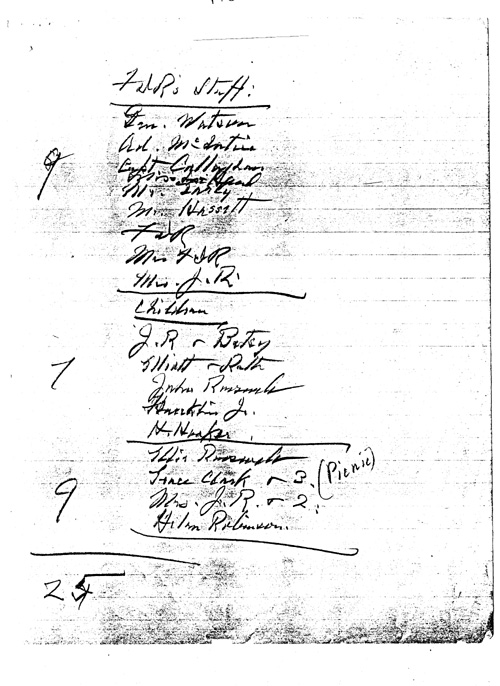 FDR's Staff:
Gen. Watson
Ad. McIntire
Capt. Callaghan
9
Mr. Early
Mr. Hassett
FDR
Mrs FDR
Mrs. J. R.
Children
J.R & Betsy
7
Elliott & Ruth
John Roosevelt
Franklin Jr.
H. Hooker.
Roosevelt
Grace Clark & 3. (Picnic)
9
Mrs. J. R. & 2.
Helen Robinson.
25